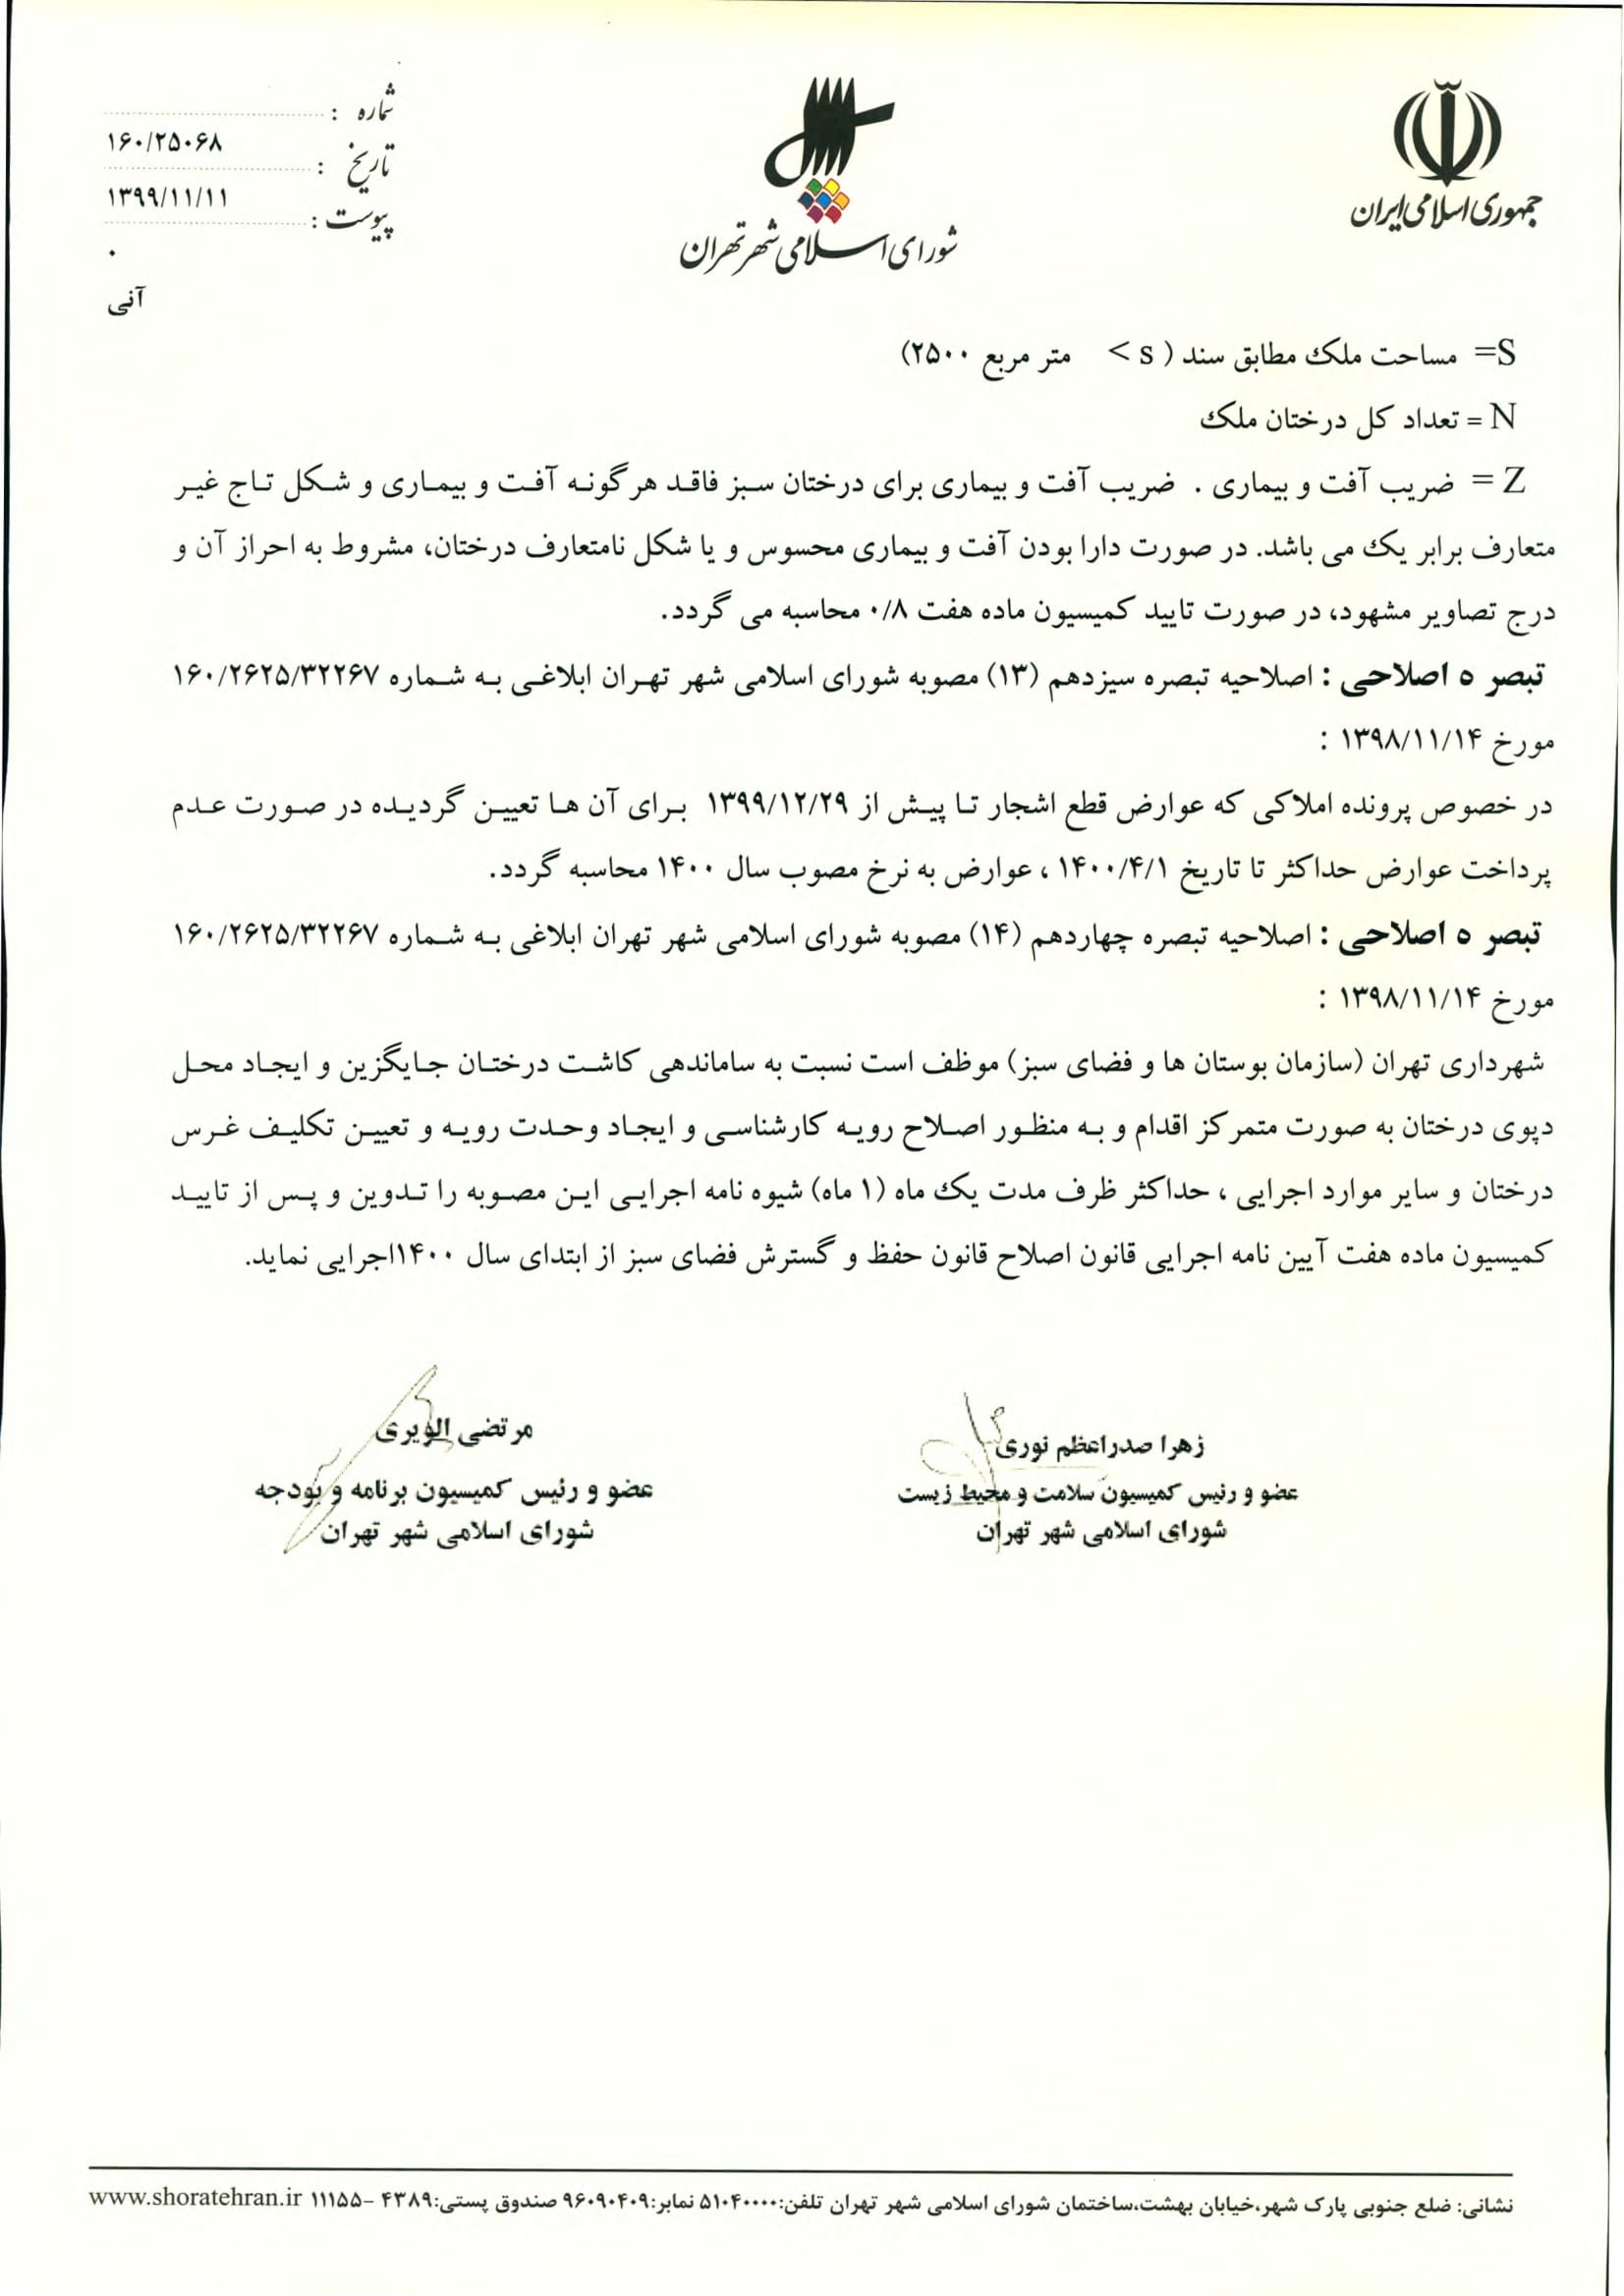 جمهوری اسلامی ایران
شورای اسلامی شهر تهران
شماره :
۱۶۰/۲۵۰۶۸
تاریخ :
۱۳۹۹/۱۱/۱۱
پیوست :
۰
آنی
S= مساحت ملک مطابق سند ( s > متر مربع ۲۵۰۰)
N = تعداد کل درختان ملک
Z = ضریب آفت و بیماری . ضریب آفت و بیماری برای درختان سبز فاقد هرگونه آفت و بیماری و شکل تاج غیر
متعارف برابر یک می باشد. در صورت دارا بودن آفت و بیماری محسوس و یا شکل نامتعارف درختان، مشروط به احراز آن و
درج تصاویر مشهود، در صورت تایید کمیسیون ماده هفت ۰/۸ محاسبه می گردد.
تبصر ه اصلاحی : اصلاحیه تبصره سیزدهم (۱۳) مصوبه شورای اسلامی شهر تهران ابلاغی به شماره ۱۶۰/۲۶۲۵/۳۲۲۶۷
مورخ ۱۳۹۸/۱۱/۱۴ :
در خصوص پرونده املاکی که عوارض قطع اشجار تا پیش از ۱۳۹۹/۱۲/۲۹ برای آن ها تعیین گردیده در صورت عدم
پرداخت عوارض حداکثر تا تاریخ ۱۴۰۰/۴/۱ ، عوارض به نرخ مصوب سال ۱۴۰۰ محاسبه گردد.
تبصر ه اصلاحی : اصلاحیه تبصره چهاردهم (۱۴) مصوبه شورای اسلامی شهر تهران ابلاغی به شماره ۱۶۰/۲۶۲۵/۳۲۲۶۷
مورخ ۱۳۹۸/۱۱/۱۴ :
شهرداری تهران (سازمان بوستان ها و فضای سبز) موظف است نسبت به ساماندهی کاشت درختان جایگزین و ایجاد محل
دپوی درختان به صورت متمرکز اقدام و به منظور اصلاح رویه کارشناسی و ایجاد وحدت رویه و تعیین تکلیف غرس
درختان و سایر موارد اجرایی ، حداکثر ظرف مدت یک ماه (۱ ماه) شیوه نامه اجرایی این مصوبه را تدوین و پس از تایید
کمیسیون ماده هفت آیین نامه اجرایی قانون اصلاح قانون حفظ و گسترش فضای سبز از ابتدای سال ۱۴۰۰اجرایی نماید.
زهرا صدراعظم نوری
عضو و رئیس کمیسیون سلامت و محیط زیست
شورای اسلامی شهر تهران
مرتضی الویری
عضو و رئیس کمیسیون برنامه و بودجه
شورای اسلامی شهر تهران
نشانی: ضلع جنوبی پارک شهر،خیابان بهشت،ساختمان شورای اسلامی شهر تهران تلفن:۵۱۰۴۰۰۰۰ نمابر:۹۶۰۹۰۴۰۹ صندوق پستی:۴۳۸۹ -۱۱۱۵۵ www.shoratehran.ir